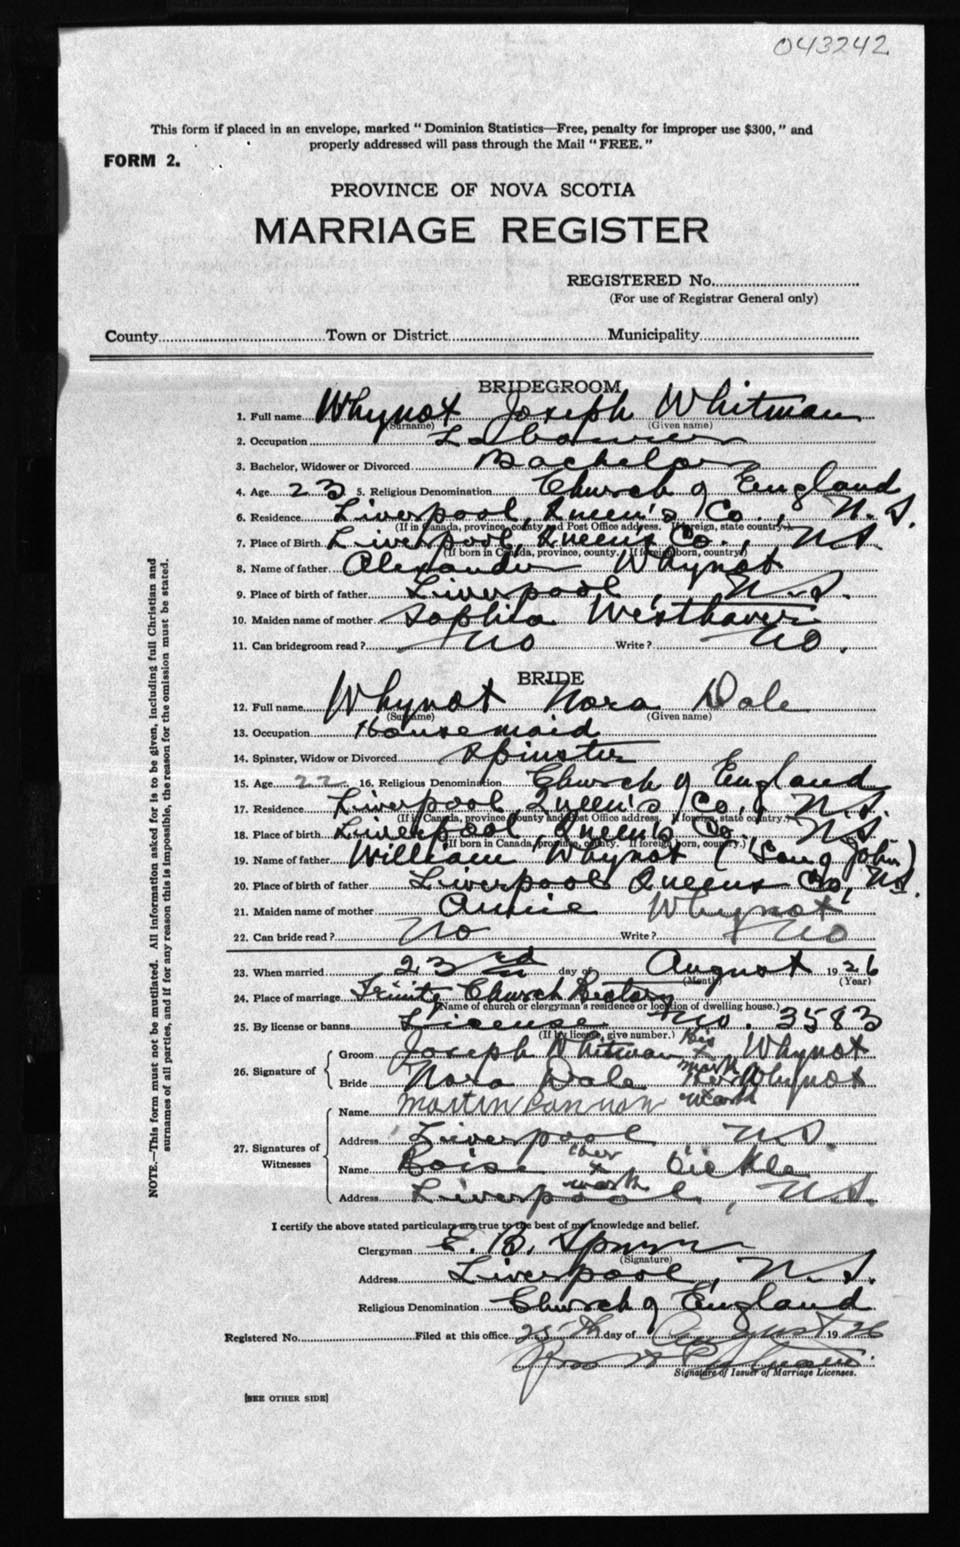 043242
This form if placed in an envelope, marked "Dominion Statistics—Free, penalty for improper use $300," and
properly addressed will pass through the Mail "FREE."
FORM 2.
PROVINCE OF NOVA SCOTIA
MARRIAGE REGISTER
REGISTERED No.
(For use of Registrar General only)
County Town or District Municipality
BRIDEGROOM
1. Full name Whynot Joseph Whitman
(Surname) (Given name)
2. Occupation Labourer
3. Bachelor, Widower or Divorced Bachelor
4. Age 23 5. Religious Denomination Church of England
6. Residence Liverpool, Queen's Co., N.S.
(If in Canada, province, county and Post Office address. If foreign, state country.)
7. Place of Birth Liverpool, Queens Co., N.S.
(If born in Canada, province, county. If foreign born, country)
8. Name of father Alexander Whynot
9. Place of birth of father Liverpool, N.S.
10. Maiden name of mother Sophia Westhaver
11. Can bridegroom read? No Write? No.
BRIDE
12. Full name Whynot Nora Dale
(Surname) (Given name)
13. Occupation Housemaid
14. Spinster, Widow or Divorced Spinster
15. Age 22 16. Religious Denomination Church of England
17. Residence Liverpool Queen's Co., N.S.
(If in Canada, province, county and Post Office address. If foreign, state country.)
18. Place of birth Liverpool, Queen's Co., N.S.
(If born in Canada, province, county. If foreign born, country.)
19. Name of father William Whynot (Son of John)
20. Place of birth of father Liverpool Queens Co, N.S.
21. Maiden name of mother Annie Whynot
22. Can bride read? No Write? No
23. When married 23rd day of August 1926
(Month) (Year)
24. Place of marriage Trinity Church Rectory
(Name of church or clergyman's residence or location of dwelling house.)
25. By license or banns License No. 3583
(If by license, give number.)
26. Signature of
Groom Joseph Whitman his x mark Whynot
Bride Nora Dale Her x mark Whynot
27. Signatures of Witnesses
Name Martin Cannon
Address Liverpool, N.S.
Name her x mark
Address Liverpool, N.S.
I certify the above stated particulars are true to the best of my knowledge and belief.
Clergyman E. B. Spurr
(Signature)
Address Liverpool, N.S.
Religious Denomination Church of England
Registered No. Filed at this office 25th day of August 1926
Signature of Issuer of Marriage Licenses.
[SEE OTHER SIDE]
NOTE.—This form must not be mutilated. All information asked for is to be given, including full Christian and
surnames of all parties, and if for any reason this is impossible, the reason for the omission must be stated.